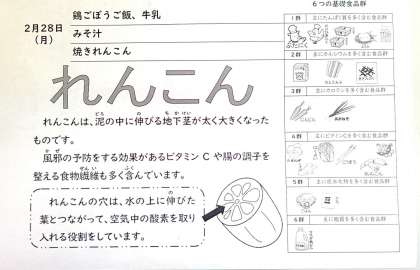 鶏ごぼうご飯、牛乳
2月28日
(月)
みそ汁
焼きれんこん
れんこん
れんこんは、泥の中に伸びる地下茎が太く大きくなった
ものです。
風邪の予防をする効果があるビタミンCや腸の調子を
整える食物繊維も多く含んでいます。
れんこんの穴は、水の上に伸びた
葉とつながって、空気中の酸素を取り
入れる役割をしています。
6つの基礎食品群
1群 主にたんぱく質を多く含む食品群
2群 主にカルシウムを多く含む食品群
3群 主にカロテンを多く含む食品群
4群 主にビタミンCを多く含む食品群
5群 主に炭水化物を多く含む食品群
6群 主に脂質を多く含む食品群